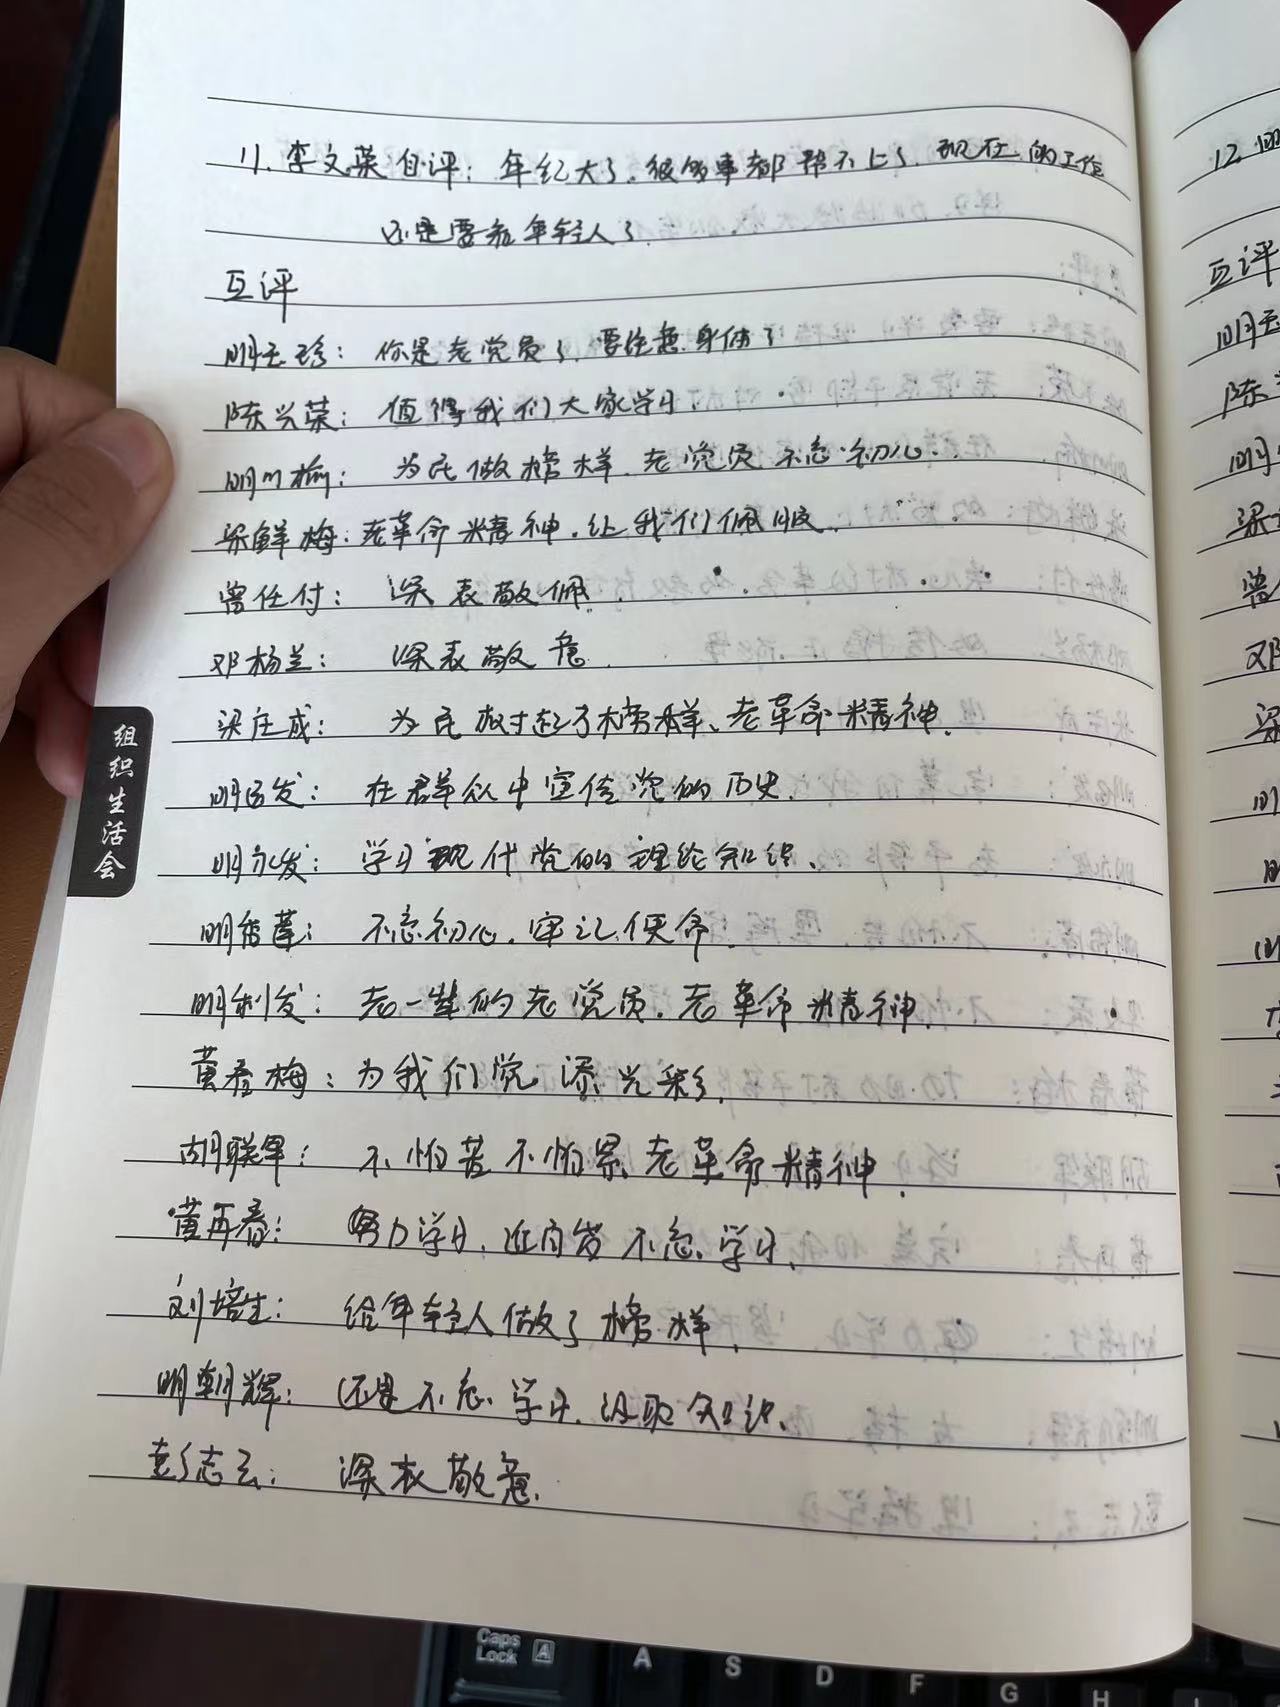 11. 李文荣自评：年纪大了，很多事都帮不上了，现在的工作
还是要靠年轻人了.
互评
明玉珍：你是老党员了，要注意身体了
陈兴荣：值得我们大家学习.
明川榆：为民做榜样，老党员不忘初心.
梁鲜梅：老革命精神，让我们佩服.
曾任付：深表敬佩.
邓杨兰：深表敬意.
梁庄成：为民树起了榜样、老革命精神.
明 发：在群众中宣传党的历史.
明永发：学习现代党的理论知识、
明香莲：不忘初心，牢记使命.
明利发：老一辈的老党员，老革命精神.
黄春梅：为我们党添光彩.
胡联军：不怕苦不怕累老革命精神.
黄再春：努力学习，近百岁不忘学习.
刘培生：给年轻人做了榜样.
明朝辉：还是不忘学习，汲取知识、
彭志云：深表敬意.
组织生活会
12 明
互评
明玉
陈兴
明
梁
曾
邓
梁
明
Caps Lock A
A S D F G H